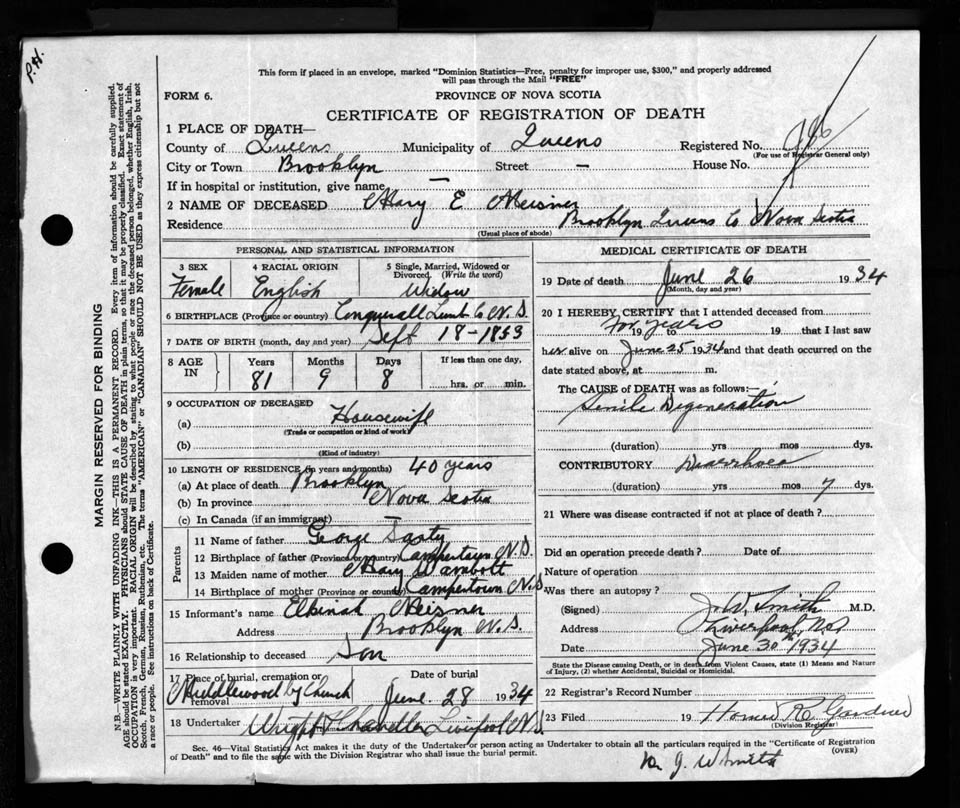 P.H.
This form if placed in an envelope, marked "Dominion Statistics—Free, penalty for improper use, $300," and properly addressed
will pass through the Mail "FREE"
FORM 6. PROVINCE OF NOVA SCOTIA
CERTIFICATE OF REGISTRATION OF DEATH
1 PLACE OF DEATH—
County of Queens Municipality of Queens Registered No.
(For use of Registrar General only)
City or Town Brooklyn Street — House No.
If in hospital or institution, give name —
2 NAME OF DECEASED Mary E Meisner
Residence Brooklyn Queens Co Nova Scotia
(Usual place of abode)
PERSONAL AND STATISTICAL INFORMATION
3 SEX 4 RACIAL ORIGIN 5 Single, Married, Widowed or
Divorced (Write the word)
Female English Widow
6 BIRTHPLACE (Province or country) Conquerall Lunb Co N.S.
7 DATE OF BIRTH (month, day and year) Sept 18-1853
8 AGE IN Years Months Days If less than one day,
81 9 8 hrs. or min.
9 OCCUPATION OF DECEASED
(a) Housewife
(Trade or occupation or kind of work)
(b)
(Kind of industry)
10 LENGTH OF RESIDENCE (in years and months) 40 years
(a) At place of death Brooklyn
(b) In province Nova Scotia
(c) In Canada (if an immigrant) —
Parents
11 Name of father George
12 Birthplace of father (Province or country) Campertown N.S.
13 Maiden name of mother Mary Wambolt
14 Birthplace of mother (Province or country) Campertown N.S
15 Informant's name Elkinah Meisner
Address Brooklyn N.S.
16 Relationship to deceased Son
17 Place of burial, cremation or removal Date of burial
Middlewood by Church June 28 1934
18 Undertaker Wright Chandler Liverpool N.S.
MEDICAL CERTIFICATE OF DEATH
19 Date of death June 26 1934
(Month, day and year)
20 I HEREBY CERTIFY that I attended deceased from
For years 19 to 19 that I last saw
her alive on June 25 1934 and that death occurred on the
date stated above, at m.
The CAUSE of DEATH was as follows:—
Senile Degeneration
(duration) yrs mos dys.
CONTRIBUTORY Diarrhoea
(duration) yrs mos 7 dys.
21 Where was disease contracted if not at place of death?
Did an operation precede death? Date of
Nature of operation
Was there an autopsy?
(Signed) J. W. Smith M.D.
Address Liverpool N.S
Date June 30th 1934
State the Disease causing Death, or in death from Violent Causes, state (1) Means and Nature
of Injury, (2) whether Accidental, Suicidal or Homicidal.
22 Registrar's Record Number
23 Filed 19 Homer R. Gardner
(Division Registrar)
Sec. 46—Vital Statistics Act makes it the duty of the Undertaker or person acting as Undertaker to obtain all the particulars required in the "Certificate of Registration
of Death" and to file the same with the Division Registrar who shall issue the burial permit. (OVER)
J. W Smith
MARGIN RESERVED FOR BINDING
N.B.—WRITE PLAINLY WITH UNFADING INK—THIS IS A PERMANENT RECORD. Every item of information should be carefully supplied.
AGE should be stated EXACTLY. PHYSICIANS should STATE CAUSE OF DEATH in plain terms, so that it may be properly classified. Exact statement of
OCCUPATION is very important. RACIAL ORIGIN will be described by stating to what people or race the deceased person belonged, whether English, Irish,
Scotch, French, German, Russian, Ruthenian, etc. The terms "AMERICAN" or "CANADIAN" SHOULD NOT BE USED as they express citizenship but not
a race or people. See instructions on back of Certificate.